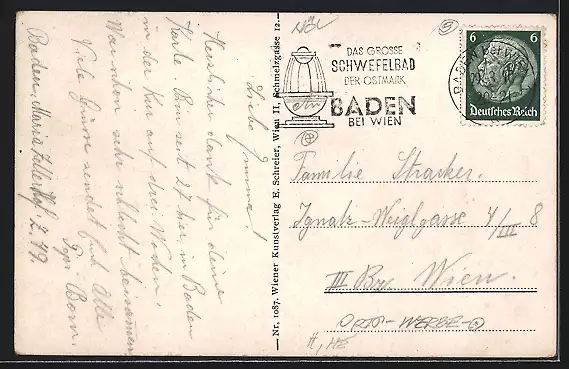 NÖL
5
DAS GROSSE
SCHWEFELBAD
DER OSTMARK
BADEN
BEI WIEN
BADEN bei WIEN
6 6
Deutsches Reich
Liebe
Herzliche dank für deine
Karte. Bin seit 27 hier in Baden
in der Kur auf drei Wochen.
sehr schlecht
Viele Grüsse sendet Euch Alle
Baden, Maria Zellerhof Z. 49.
– Nr. 1087. Wiener Kunstverlag E. Schreier, Wien II, Schmelzgasse 12. –
Familie
Ignatz-Weiglgasse 4/III 8
III Bz. Wien.
ORTS-WERBE-O